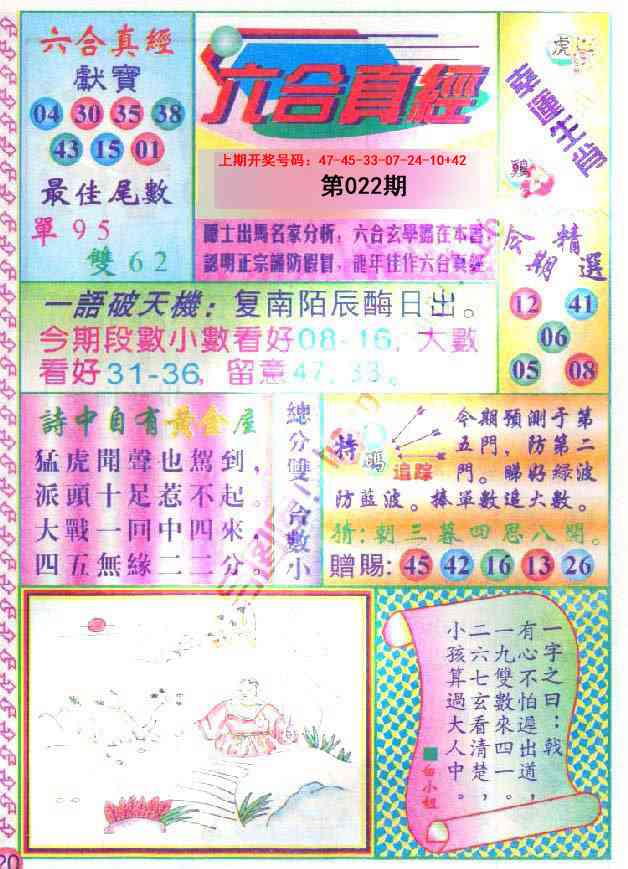 六合真經
獻寶
04 30 35 38
43 15 01
最佳尾數
單95
雙62
六合真經
上期开奖号码：47-45-33-07-24-10+42
第022期
認明正宗謹防假冒，龍年佳作六合真經
虎
鷄
幸運生肖
今期精選
12 41
06
05 08
一語破天機：复南陌辰酶日出。
今期段數小數看好08-16，大數
看好31-36，留意47，33。
詩中自有黃金屋
猛虎聞聲也駕到，
派頭十足惹不起。
大戰一回中四來，
四五無緣二二分。
總分雙合數小
特碼
追踪
今期預測于第
五門，防第二
門。睇好綠波
防藍波。捧單數追大數。
猜：朝三暮四思八開。
贈賜：45 42 16 13 26
一字之曰：戟
有心不怕遲出道，
一九雙數來四一。
二六七玄看清楚，
小孩算過大人中。
白小姐
20